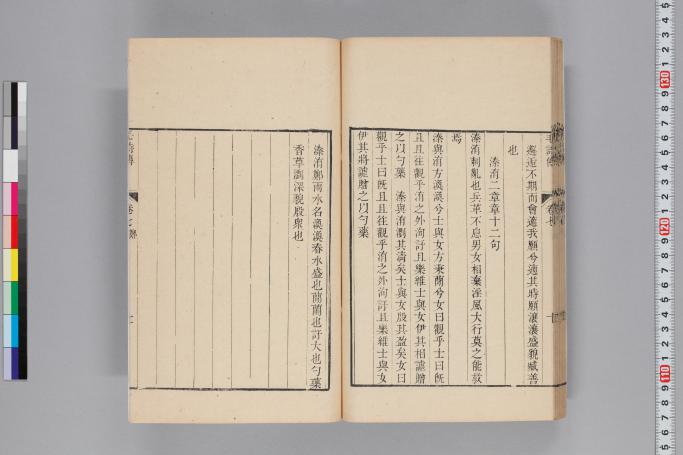 邂逅不期而會適我願兮適其時願瀼瀼盛貌臧善
也
溱洧二章章十二句
溱洧刺亂也兵革不息男女相棄淫風大行莫之能救
焉
溱與洧方渙渙兮士與女方秉蕑兮女曰觀乎士曰既
且且往觀乎洧之外洵訏且樂維士與女伊其相謔贈
之以勺藥　溱與洧瀏其清矣士與女殷其盈矣女曰
觀乎士曰既且且往觀乎洧之外洵訏且樂維士與女
伊其將謔贈之以勺藥
溱洧鄭兩水名渙渙春水盛也蕑蘭也訏大也勺藥
香草瀏深貌殷衆也